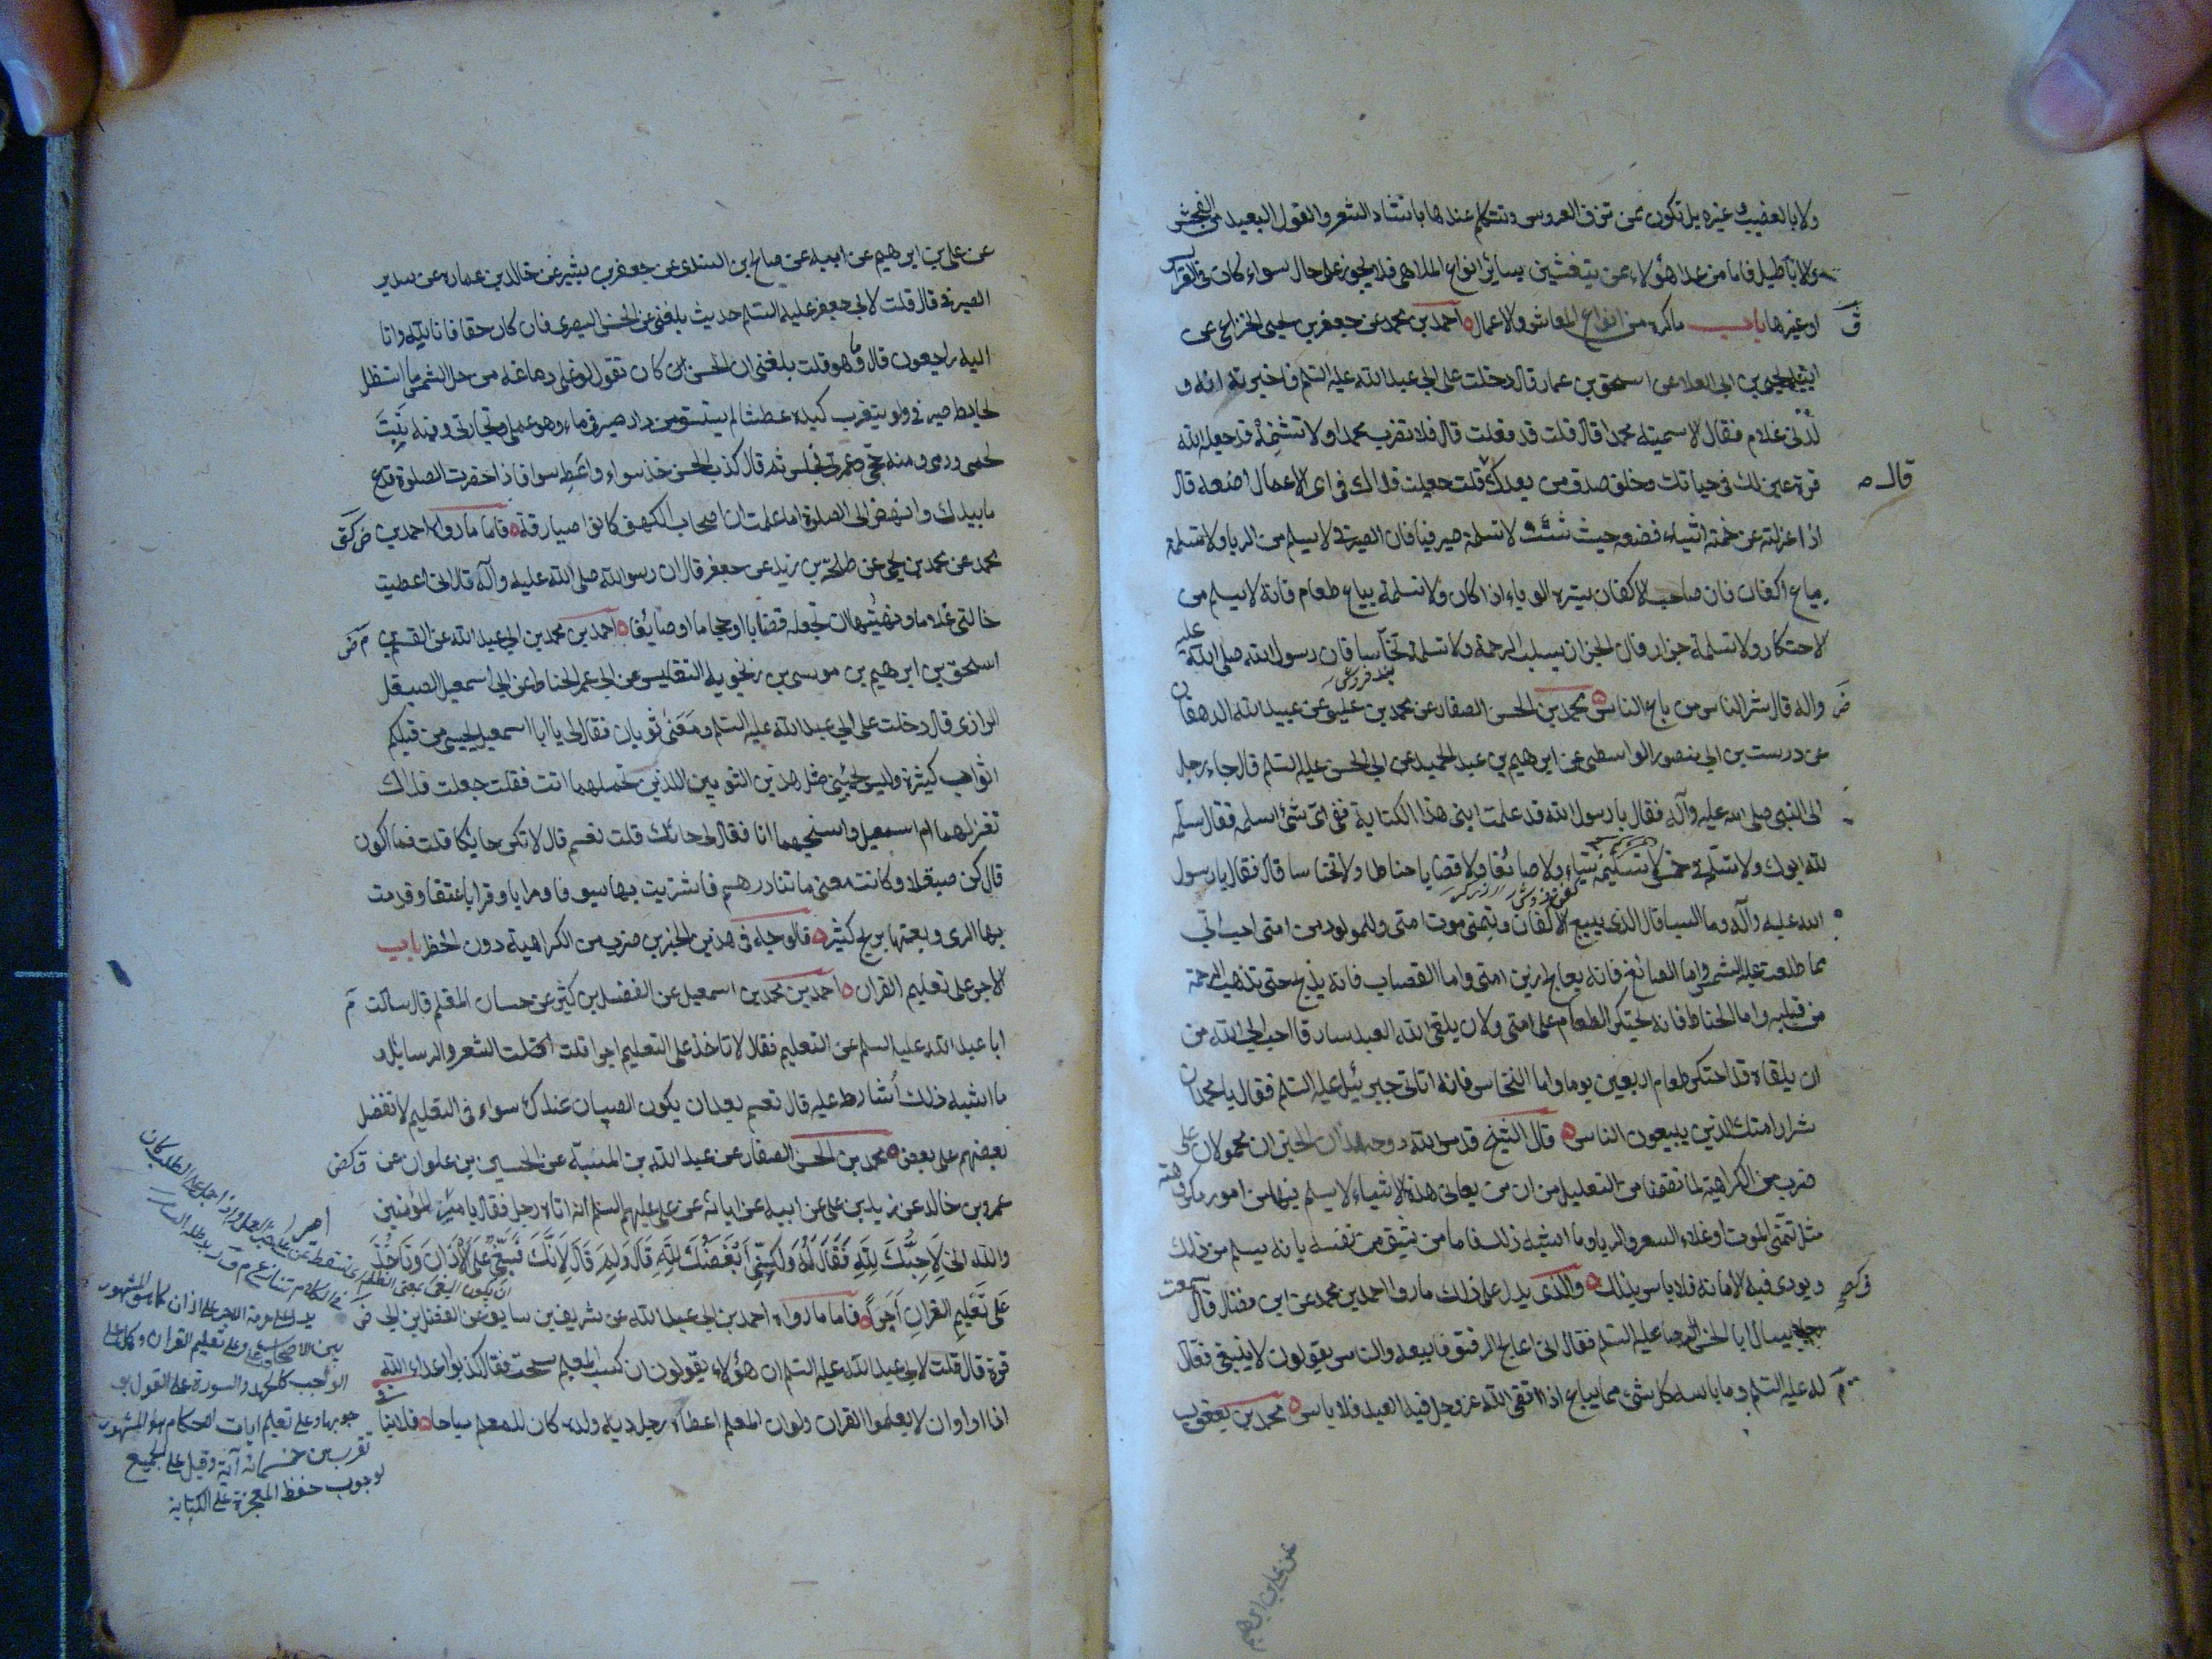 ولا بالقضيب وغيره بل تكون ممن تزف العروس وتتكلم عندها بانشاد الشعر والقول البعيد من الفحش
والاباطيل فاما من عدا هؤلاء ممن يتغنين بسائر انواع الملاهي فلا يجوز على حال سواء كان في العرايس
او غيرها باب ما كره من انواع المعايش والاعمال احمد بن محمد عن جعفر بن يحيى الخزاعي عن
ابيه يحيى بن ابي العلا عن اسحق بن عمار قال دخلت على ابي عبد الله عليه السلم فاخبرته انه و
لد لي غلام فقال الا سميته محمدا قال قلت قد فعلت قال فلا تضرب محمدا ولا تشتمه قد جعله الله
قرة عين لك في حياتك وخلف صدق من بعدك قلت جعلت فداك في اى الاعمال اضعه قال
قال
اذا عزلته عن خمسة اشياء فضعه حيث شئت لا تسلمه صيرفيا فان الصيرفي لا يسلم من الربا ولا تسلمه
بياع اكفان فان صاحب الاكفان يسره الوباء اذا كان ولا تسلمه بياع طعام فانه لا يسلم من
الاحتكار ولا تسلمه جزارا فان الجزار يسلب الرحمة ولا تسلمه نخاسا فان رسول الله صلى الله عليه
واله قال شر الناس من باع الناس محمد بن الحسن الصفار عن محمد بن عيسى عن عبيد الله الدهقان
عن درست بن ابي منصور الواسطى عن ابرهيم بن عبد الحميد عن ابي الحسن عليه السلم قال جاء رجل
الى النبي صلى الله عليه وآله فقال يا رسول الله قد علمت ابني هذا الكتابة ففي اى شئ اسلمه فقال سلمه
لله ابوك ولا تسلمه في خمس لا تسلمه سياء ولا صائغا ولا قصابا ولا حناطا ولا نخاسا قال فقال يا رسول
الله عليه وآله وما السبا قال الذى يبيع الاكفان ويتمنى موت امتى وللمولود من امتى احب الي
مما طلعت عليه الشمس واما الصائغ فانه يعالج زين امتى واما القصاب فانه يذبح حتى تذهب الرحمة
من قلبه واما الحناط فانه يحتكر الطعام على امتى ولان يلقى الله العبد سارقا احب الي الله من
ان يلقاه قد احتكر طعاما اربعين يوما واما النخاس فانه اتاني جبرئيل عليه السلم فقال يا محمد ان
شرار امتك الذين يبيعون الناس قال الشيخ قدس الله روحه هذان الخبران محمولان على
ضرب من الكراهية لما تضمنا من التعليل من ان من يعاني هذه الاشياء لا يسلم فيها من امور مكروهة
مثل تمنى الموت او غلاء السعر والربا وما اشبه ذلك فاما من يثق من نفسه بانه يسلم من ذلك
ويودى فيه الأمانة فلا باس بذلك والذى يدل على ذلك ما رواه احمد بن محمد عن ابن فضال قال سمعت
رجلا يسال ابا الحسن الرضا عليه السلم فقال اني اعالج الرقيق فابيعه والناس يقولون لا ينبغي فقال
له عليه السلم وما باسه كل شئ مما يباع اذا اتقى الله عز وجل فيه العبد فلا باس محمد بن يعقوب
عن علي بن ابرهيم
عن علي بن ابرهيم عن ابيه عن صالح بن السندى عن جعفر بن بشير عن خالد بن عمارة عن سدير
الصيرفي قال قلت لابي جعفر عليه السلم حديث بلغني عن الحسن البصرى فان كان حقا فانا لله وانا
اليه راجعون قال وما هو قلت بلغني ان الحسن كان يقول لو غلى دماغه من حر الشمس ما استظل
بحايط صيرفي ولو يتفرث كبده عطشا لم يستسق من دار صيرفي ماء وهو عملي وتجارتي وفيه نبت
لحمى ودمى ومنه حجى وعمرتي فجلس ثم قال كذب الحسن خذ سواء واعط سواء فاذا حضرت الصلوة فدع
ما بيدك وانهض الى الصلوة اما علمت ان اصحاب الكهف كانوا صيارفة فاما ما رواه احمد بن
محمد عن محمد بن يحيى عن طلحة بن زيد عن جعفر قال ان رسول الله صلى الله عليه وآله قال اني اعطيت
خالتي غلاما ونهيتها ان تجعله قصابا او حجاما او صايغا احمد بن محمد بن ابي عبد الله عن القسم بن
اسحق بن ابرهيم بن موسى بن زنجويه التفليسي عن ابي عمر الحناط عن ابي اسمعيل الصيقل
الرازى قال دخلت على ابي عبد الله عليه السلم ومعى ثوبان فقال لي يا ابا اسمعيل يجيئني من قبلكم
اثواب كثيرة وليس يجيئني مثل هذين الثوبين اللذين تحملهما انت فقلت جعلت فداك
تغزلهما ام اسمعيل وانسجهما انا فقال لي حائك قلت نعم قال لا تكن حائكا قلت فما اكون
قال كن صيقلا وكانت معى مائتا درهم فاشتريت بها سيوفا ومرايا وقرابا عتقا وقدمت
بها الرى وبعتها بربح كثير فالوجه في هذين الخبرين ضرب من الكراهية دون الحظر باب
الاجر على تعليم القران احمد بن محمد بن اسمعيل عن الفضل بن كثير عن حسان المعلم قال سالت
ابا عبد الله عليه السلم عن التعليم فقال لا تاخذ على التعليم اجرا قلت الشعر والرسايل و
ما اشبه ذلك اشارط عليه قال نعم بعد ان يكون الصبيان عندك سواء في التعليم لا تفضل
بعضهم على بعض محمد بن الحسن الصفار عن عبد الله بن المنبه عن الحسين بن علوان عن
عمرو بن خالد عن زيد بن علي عن ابيه عن ابائه عن علي عليهم السلم انه اتاه رجل فقال يا امير المؤمنين
والله اني لاحبك لله فقال له ولكنى ابغضك لله قال ولم قال لانك تبغى على الاذان وتاخذ
على تعليم القران اجرا فاما ما رواه احمد بن ابي عبد الله عن شريف بن سابق عن الفضل بن ابي
قرة قال قلت لابي عبد الله عليه السلم ان هؤلاء يقولون ان كسب المعلم سحت فقال كذبوا اعداء الله
انما ارادوا ان لا يعلموا القران ولو ان المعلم اعطاه رجل دية ولده كان للمعلم مباحا فلا ينا
يدل على حرمة الاجر على الاذان كما هو المشهور
بين الاصحاب وعلى تعليم القران وحمل على
الواجب كالحمد والسورة على القول بو
جوبها وعلى تعليم ايات الاحكام وهو المشهور
تقرب من خمسمائة آية وقيل على الجميع
لوجوب حفظ المعجزة على الكفاية